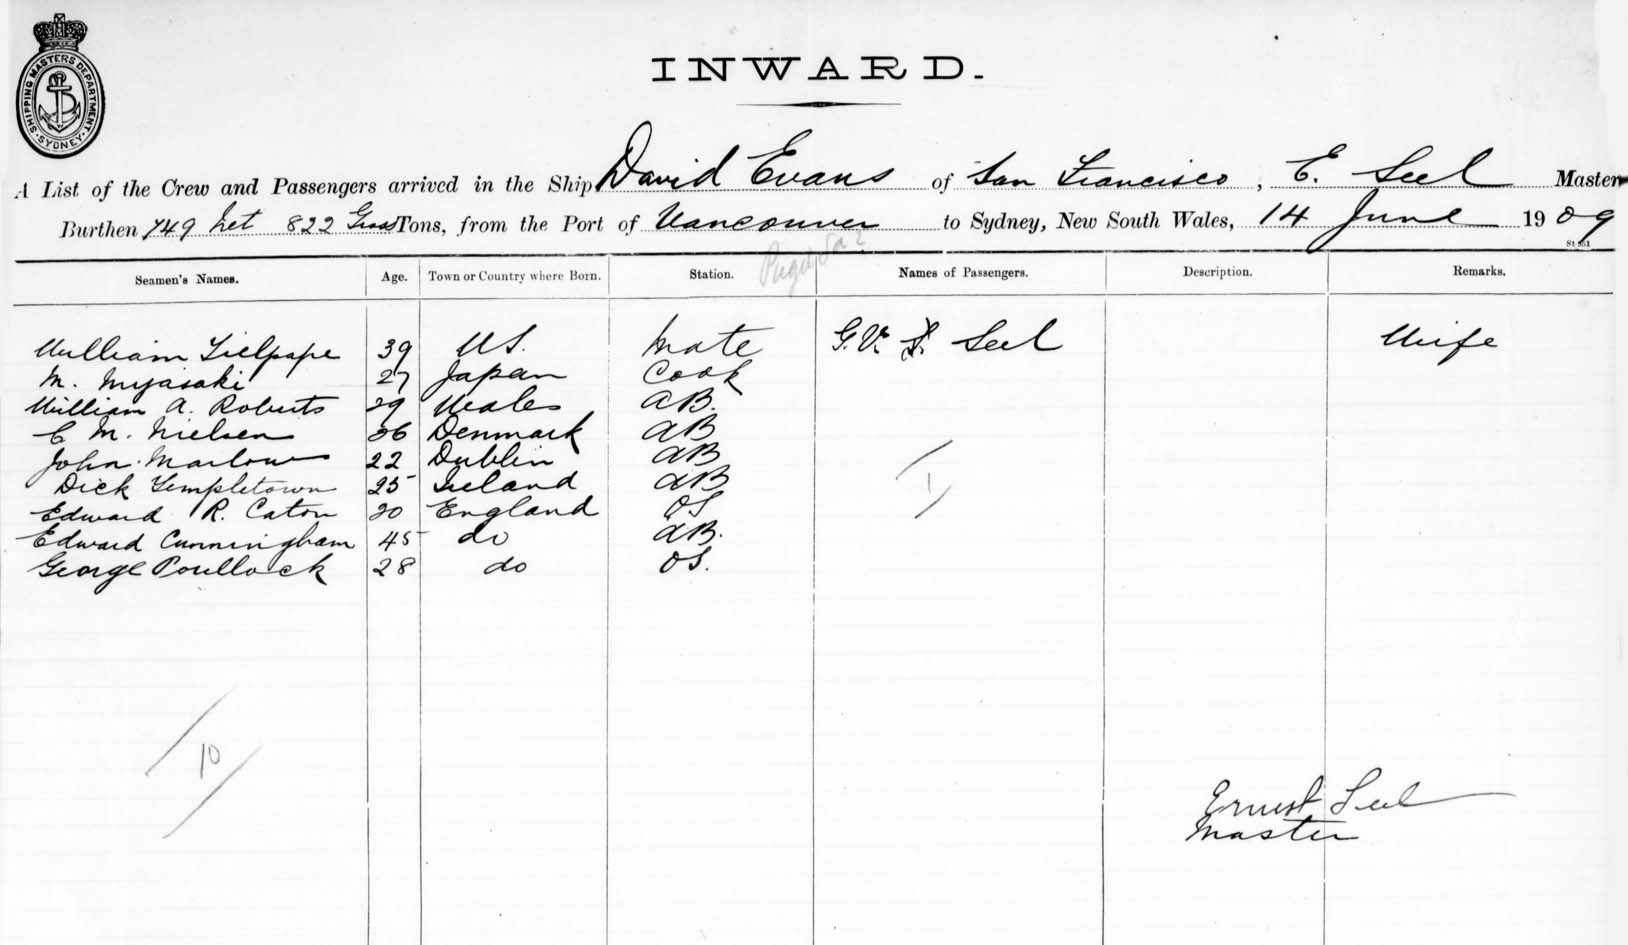 SHIPPING MASTERS DEPARTMENT. SYDNEY
INWARD.
A List of the Crew and Passengers arrived in the Ship David Evans of San Francisco, E. Seel Master
Burthen 749 net 822 Gross Tons, from the Port of Vancouver to Sydney, New South Wales, 14 June 1909
Seamen's Names. Age. Town or Country where Born. Station. Names of Passengers. Description. Remarks.
William Tielpape 39 US. Mate G. V. S. Seel Wife
M. Myasaki 27 Japan Cook
William A. Roberts 29 Wales AB.
C M. Nielsen 36 Denmark AB
John Marlow 22 Dublin AB
Dick Templetown 25 Ireland AB
Edward R. Caton 20 England OS
Edward Cunningham 45 do AB.
George Poullock 28 do OS.
1
10
Ernest Seel
Master